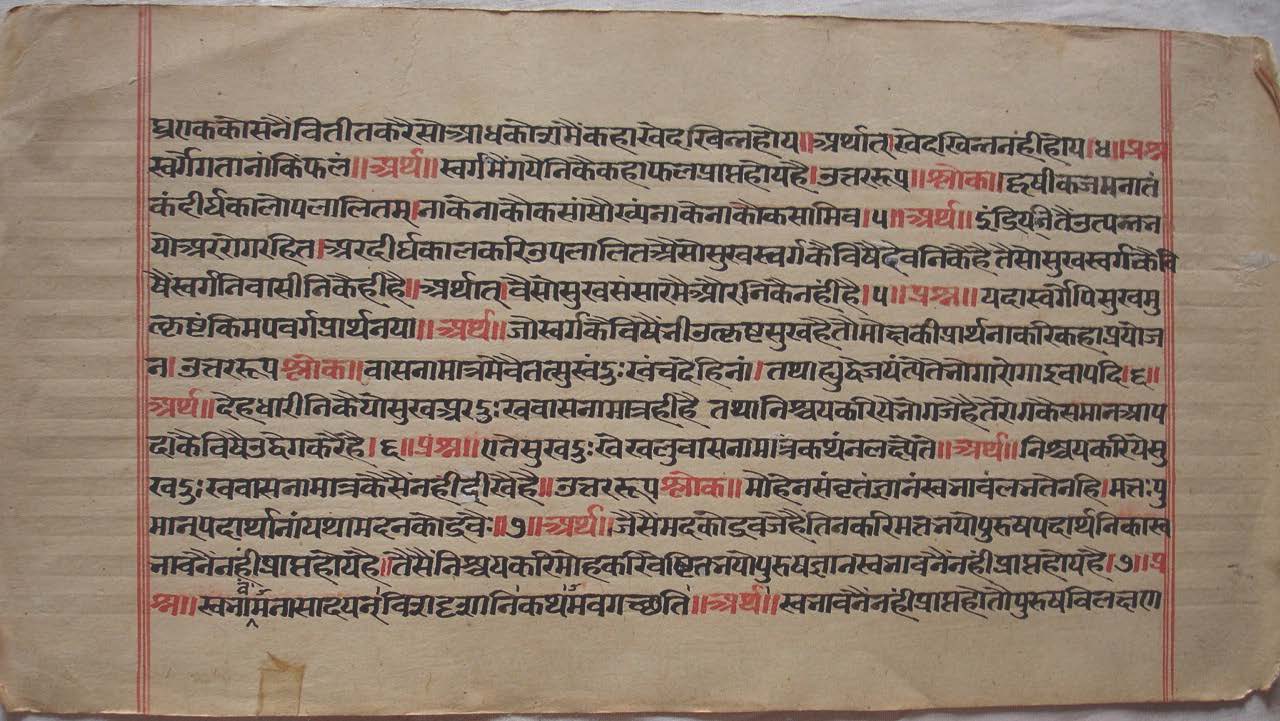 घ्राणककोसनैंवितीतकरैसोआधकोशमैंकहाखेदखिन्नहोय॥अर्थात्।खेदखिन्ननंहीहोय।४॥प्रश्न
स्वर्गेगतानांकिंफलं॥अर्थ॥स्वर्गमैंगयेनिकैकहाफलप्राप्तहोयहै।उत्तररूप॥श्लोक॥हृषीकजमनातं
कंदीर्घकालोपलालितम्।नाकेनाकौकसांसौख्यंनाकेनाकौकसामिव।५॥अर्थ॥इंद्रियनितैउत्पन्नन
योअररोगरहित।अरदीर्घकालकरिउपलालितअैसोसुखस्वर्गकैविषैदेवनिकैहैतैसोसुखस्वर्गकैवि
षैंस्वर्गनिवासीनिकैहीहै॥अर्थात्।वैसोसुखसंसारमैऔरनिकैनंहीहै।५॥प्रश्न॥यदास्वर्गेपिसुखमु
त्कृष्टंकिमपवर्गप्रार्थनया॥अर्थ॥जोस्वर्गकैविषैंनीउत्कृष्टसुखहैतौमोक्षकीप्रार्थनाकरिकहाप्रयोज
न।उत्तररूपश्लोक॥वासनामात्रमेवैतत्सुखंदुःखंचदेहिनां।तथाह्युद्वेजयंत्येतेनोगारोगाइवापदि।६॥
अर्थ॥देहधारीनिकैयोसुखअरदुःखवासनामात्रहीहै तथानिश्चयकरियेनोगजेहैतेरोगकैसमानआप
दाकैविषैउद्वेगकरैहै।६॥प्रश्न॥एतेसुखदुःखेखलुवासनामात्रेकथंनलक्ष्येते॥अर्थ॥निश्चयकरियेसु
खदुःखवासनामात्रकैसैंनहीदीखैहै॥उत्तररूपश्लोक॥मोहेनसंवृतंज्ञानंस्वनावंलनतेनहि।मत्तःपु
मान्पदार्थानांयथामदनकोद्रवैः॥७॥अर्थ॥जैसैंमदकोद्रवजेहैतिनकरिमत्तनयोपुरुषपदार्थनिकास्व
नावनैंनंहीप्राप्तहोयहै॥तैसैंनिश्चयकरिमोहकरिवेष्टितनयोपुरुषज्ञानस्वनावनैंनंहीप्राप्तहोयहै।७॥प्र
श्न॥स्वनावमनासादयन्विसदृशानिकथमवगच्छति॥अर्थ॥स्वनावनैंनंहीप्राप्तहोतोपुरुषविलक्षण